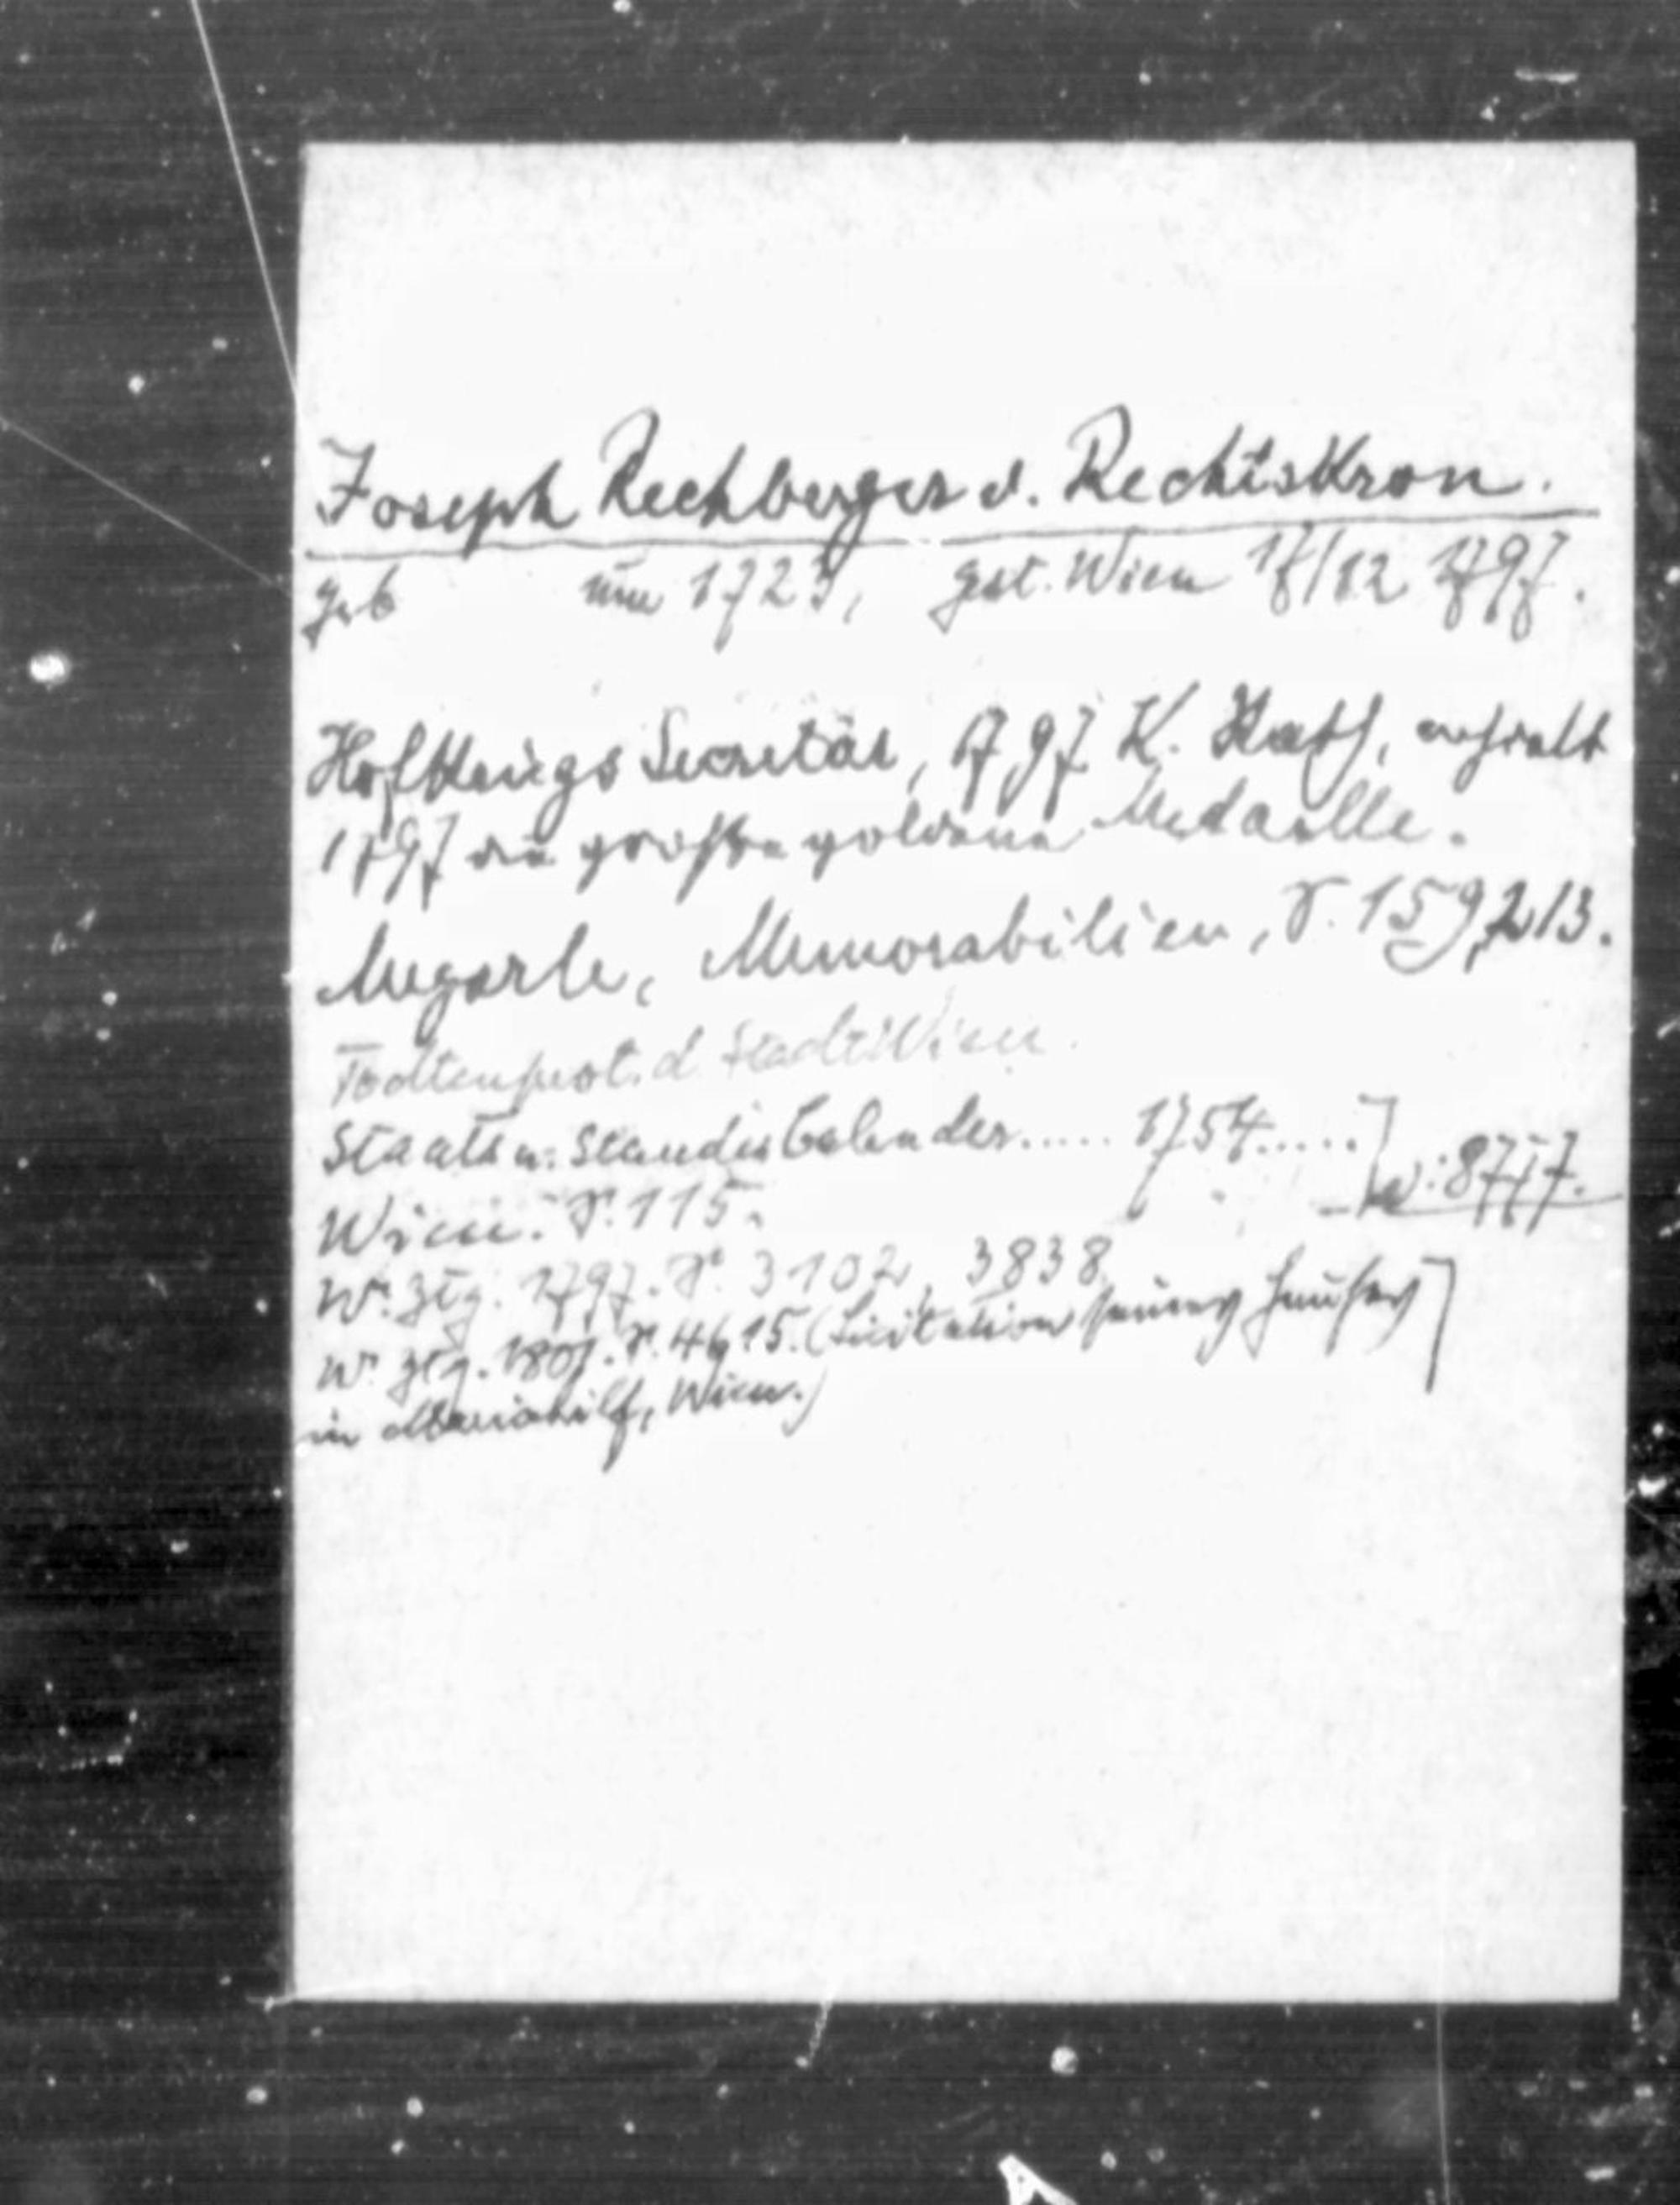 Joseph Rechberger v. Rechtskron.
geb um 1723, gest. Wien 17/12 1797.
Hofkriegs Secretär, 1797 K. Rath, erhielt
1797 die große goldene Medaille.
Megerle, Memorabilien, S. 159, 213.
Todtenprot. d Stadt Wien.
Staats u. Standes Calender..... 1754.....
Wien. S. 115.
Wr. Ztg. 1797. S. 3102, 3838
Wr. Ztg. 1801. S. 4615. (Licitation seines Hauses
in Mariahilf, Wien.)